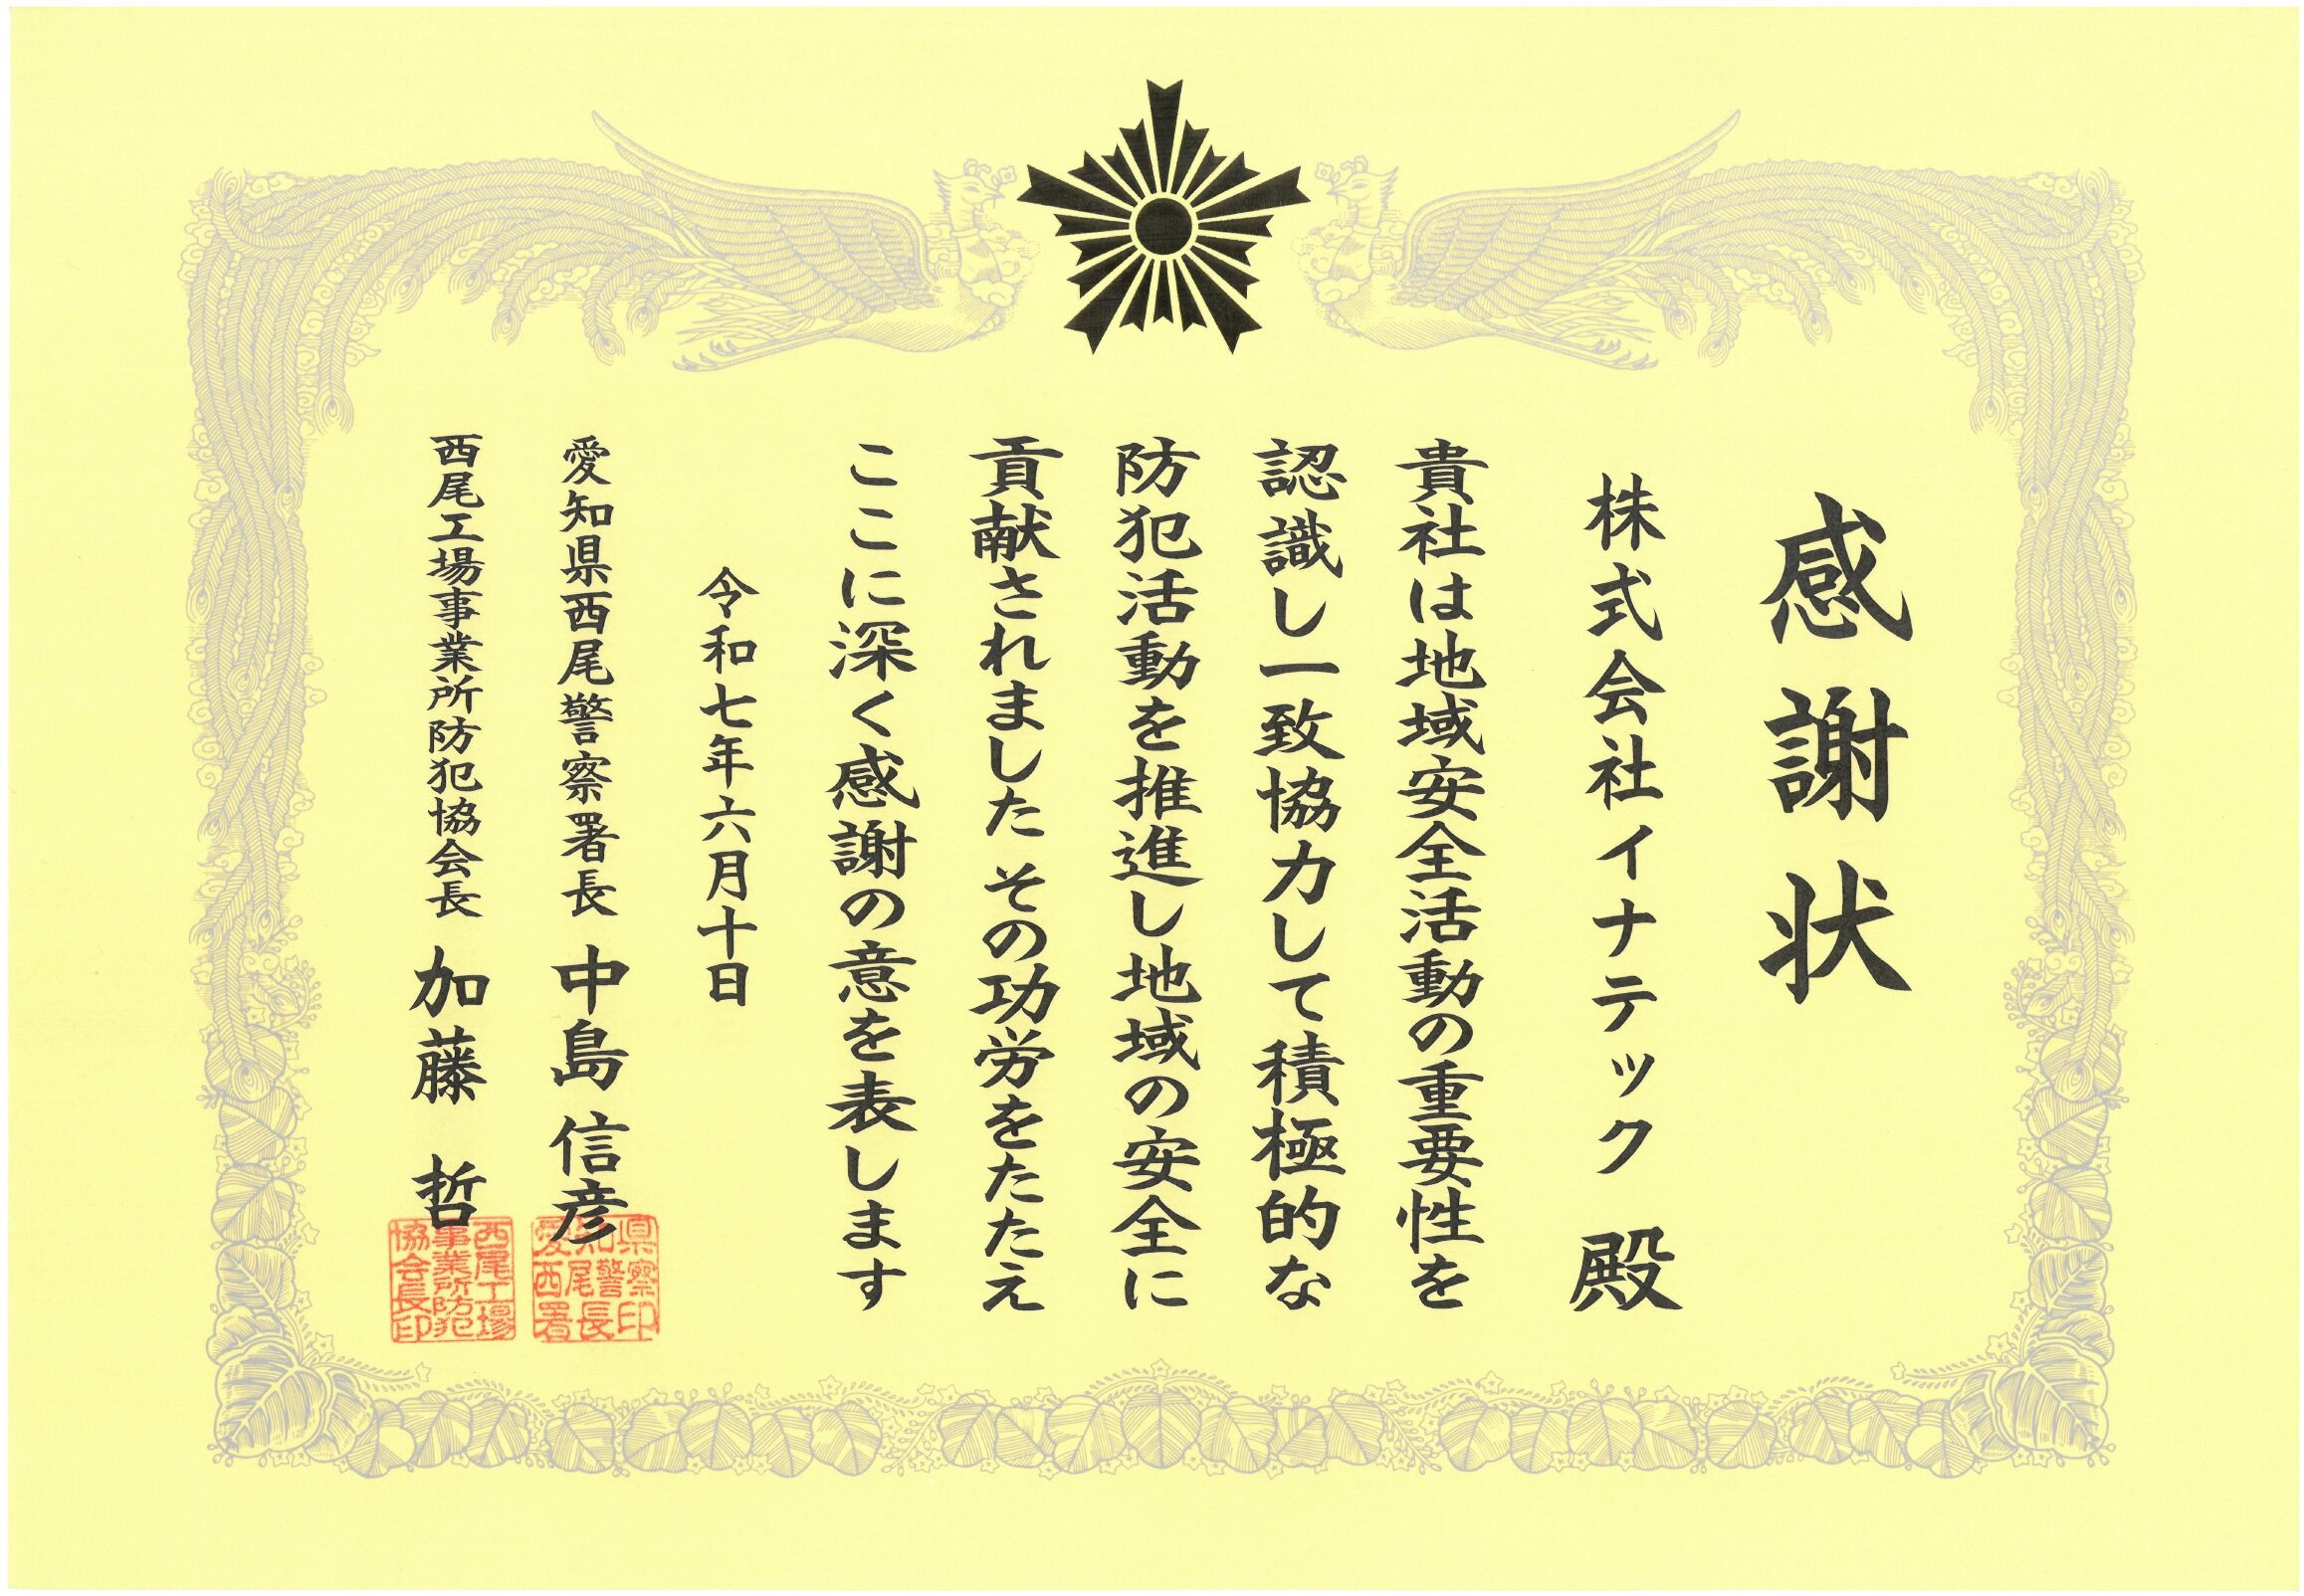 感謝状
株式会社イナテック 殿
貴社は地域安全活動の重要性を
認識し一致協力して積極的な
防犯活動を推進し地域の安全に
貢献されました その功労をたたえ
ここに深く感謝の意を表します
令和七年六月十日
愛知県西尾警察署長 中島信彦
西尾工場事業所防犯協会長 加藤 哲
愛知県
西尾警察
署長印
西尾工場
事業所防犯
協会長印